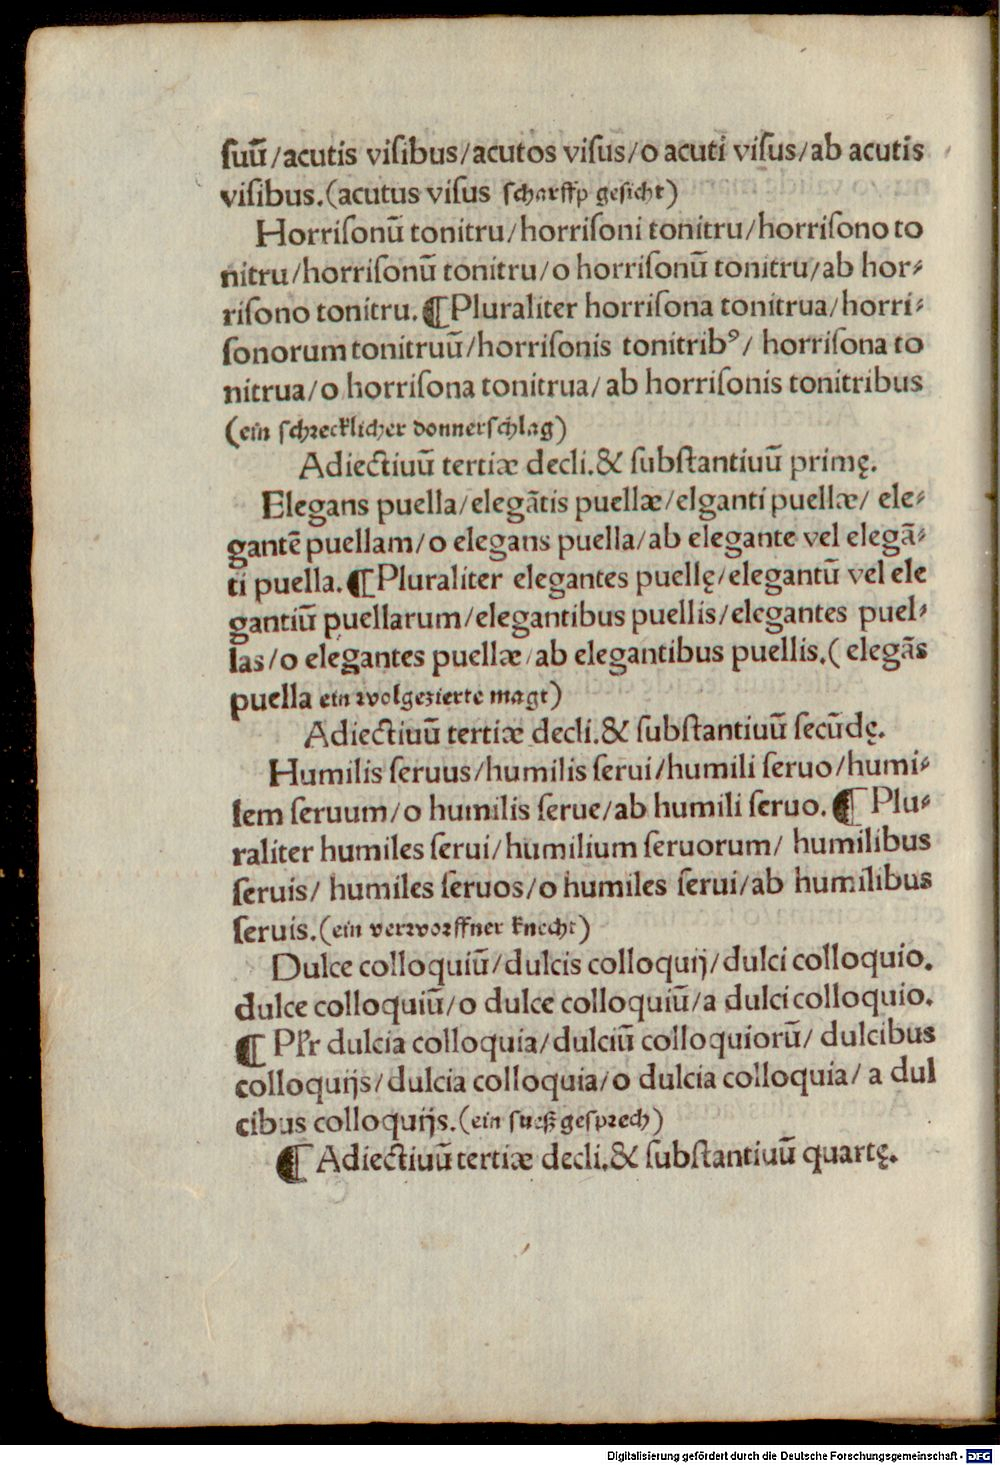 ſuū/acutis viſibus/acutos viſus/o acuti viſus/ab acutis
viſibus.(acutus viſus ſcharffp geſicht)
Horriſonū tonitru/horriſoni tonitru/horriſono to
nitru/horriſonū tonitru/o horriſonū tonitru/ab hor⸗
riſono tonitru. ¶Pluraliter horriſona tonitrua/horri⸗
ſonorum tonitruū/horriſonis tonitribꝰ/ horriſona to
nitrua/o horriſona tonitrua/ab horriſonis tonitribus
(ein ſchꝛecklicher donnerſchlag)
Adiectiuū tertiæ decli.& ſubſtantiuū primę.
Elegans puella/elegātis puellæ/elganti puellæ/ ele⸗
gantē puellam/o elegans puella/ab elegante vel elegā⸗
ti puella. ¶Pluraliter elegantes puellę/elegantū vel ele
gantiū puellarum/elegantibus puellis/elegantes puel⸗
las/o elegantes puellæ/ab elegantibus puellis.( elegās
puella ein wolgezierte magt)
Adiectiuū tertiæ decli.& ſubſtantiuū ſecūdę.
Humilis ſeruus/humilis ſerui/humili ſeruo/humi⸗
lem ſeruum/o humilis ſerue/ab humili ſeruo. ¶ Plu⸗
raliter humiles ſerui/humilium ſeruorum/ humilibus
ſeruis/ humiles ſeruos/o humiles ſerui/ab humilibus
ſeruis.(ein verwoꝛffner knecht)
Dulce colloquiū/dulcis colloquij/dulci colloquio.
dulce colloquiū/o dulce colloquiū/a dulci colloquio.
¶ Pl̄r dulcia colloquia/dulciū colloquiorū/ dulcibus
colloquijs/dulcia colloquia/o dulcia colloquia/ a dul
cibus colloquijs.(ein ſueß geſpꝛech)
¶ Adiectiuū tertiæ decli.& ſubſtantiuū quartę.
Digitalisierung gefördert durch die Deutsche Forschungsgemeinschaft - DFG